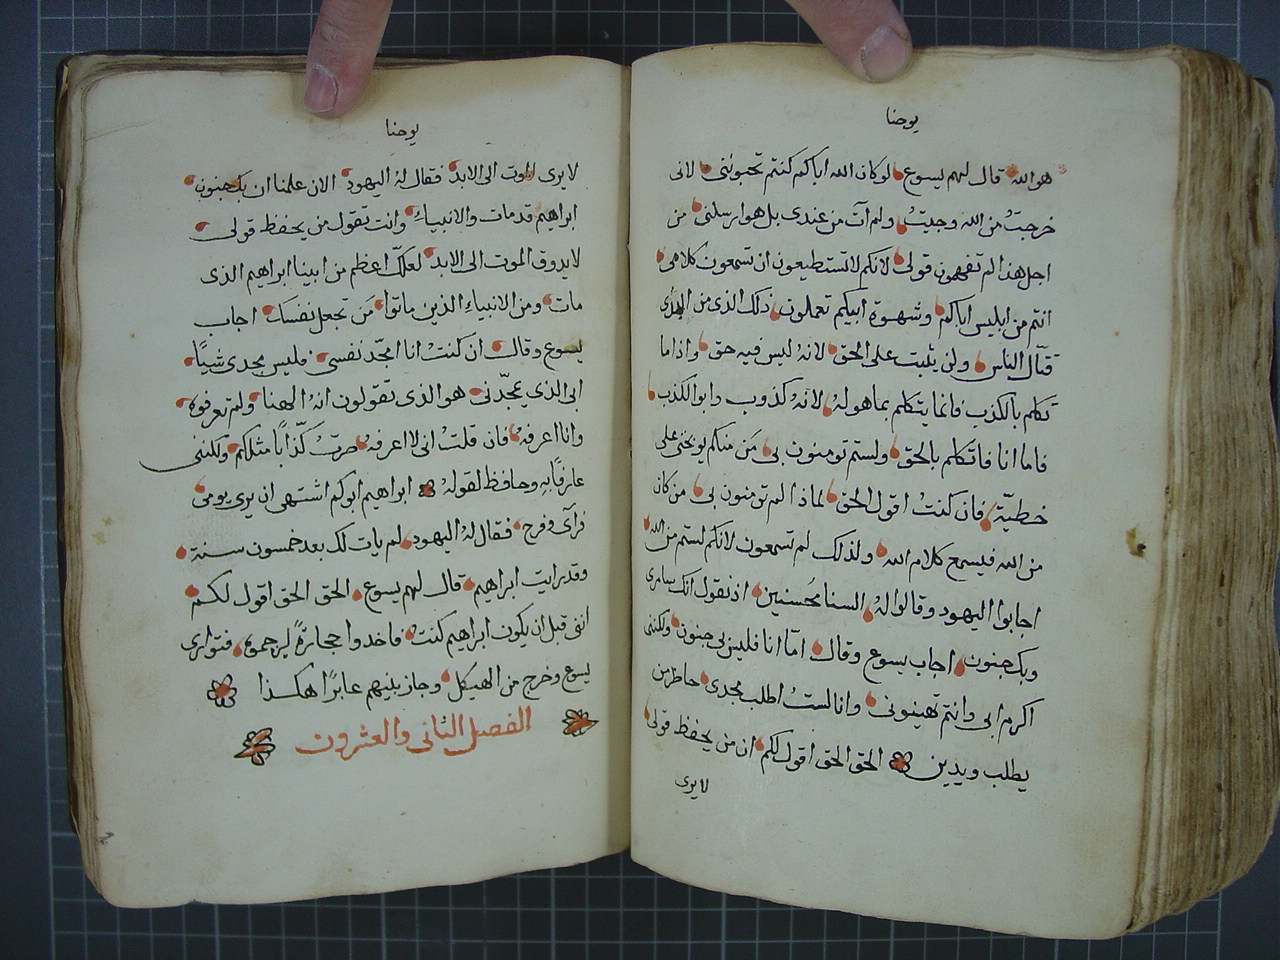 يوحنا
هو الله قال لهم يسوع لو كان الله اباكم كنتم تحبوننى لانى
خرجتُ من الله وجيتُ ولم آتَ من عندى بل هو ارسلنى من
اجل هذا لم تفهمون قولى لانكم لا تستطيعون ان تسمعون كلامى
انتم من ابليس اباكم وشهوة ابيكم تعملون ذلك الذى من البدى
قتّال الناس ولن يثبت على الحق لانهُ ليس فيه حق واذا ما
تكلم بالكذب فانما يتكلم بما هو لهُ لانهُ كذوب وابو الكذب
فاما انا فاتكلم بالحق ولستم تومنون بى مَن منكم يوبخنى على
خطيّة فان كنتُ اقول الحق لماذا لم تومنون بى من كان
من الله فيسمع كلام الله ولذلك لم تسمعون لانكم لستم من الله
اجابوا اليهود وقالوا لهُ السنا مُحسنين اذ نقول انك سامرى
وبك جنون اجاب يسوع وقال امّا انا فليس بى جنون ولكننى
اكرم ابى وانتم تهينونى وانا لستُ اطلب مجدى حاظر من
يطلب ويدين الحق الحق اقول لكم ان من يحفظ قولى
لا يرى
يوحنا
لا يرى الموت الى الابد فقال لهُ اليهود الان علمنا ان بك جنون
ابراهيم قد مات والانبياءُ وانت تقول من يحفظ قولى
لا يدوق الموت الى الابد لعلكَ اعظم من ابينا ابراهيم الذى
مات ومن الانبياءِ الذين ماتوا مَن تجعل نفسكَ اجاب
يسوع وقال ان كنتُ انا امجّد نفسى فليس مجدى شياً
ابى الذي يمجّدنى هو الذى تقولون انهُ الهنا ولم تعرفوه
وانا اعرفهُ فان قلتُ انى لا اعرفهُ صرتُ كذّاباً مثلكم ولكننى
عارفاً بهِ وحافظ لقولهُ ابراهيم ابوكم اشتهى ان يرى يومى
فرآى وفرح فقال لهُ اليهود لم يات لك بعد خمسون سنة
وقد رايت ابراهيم قال لهم يسوع الحق الحق اقول لكم
اننى قبل ان يكون ابراهيم كنتُ فاخدوا حجارةً ليرجموه فتوارى
يسوع وخرج من الهيكل وجاز بينهم عابرًا هكذا
الفصل الثانى والعشرون